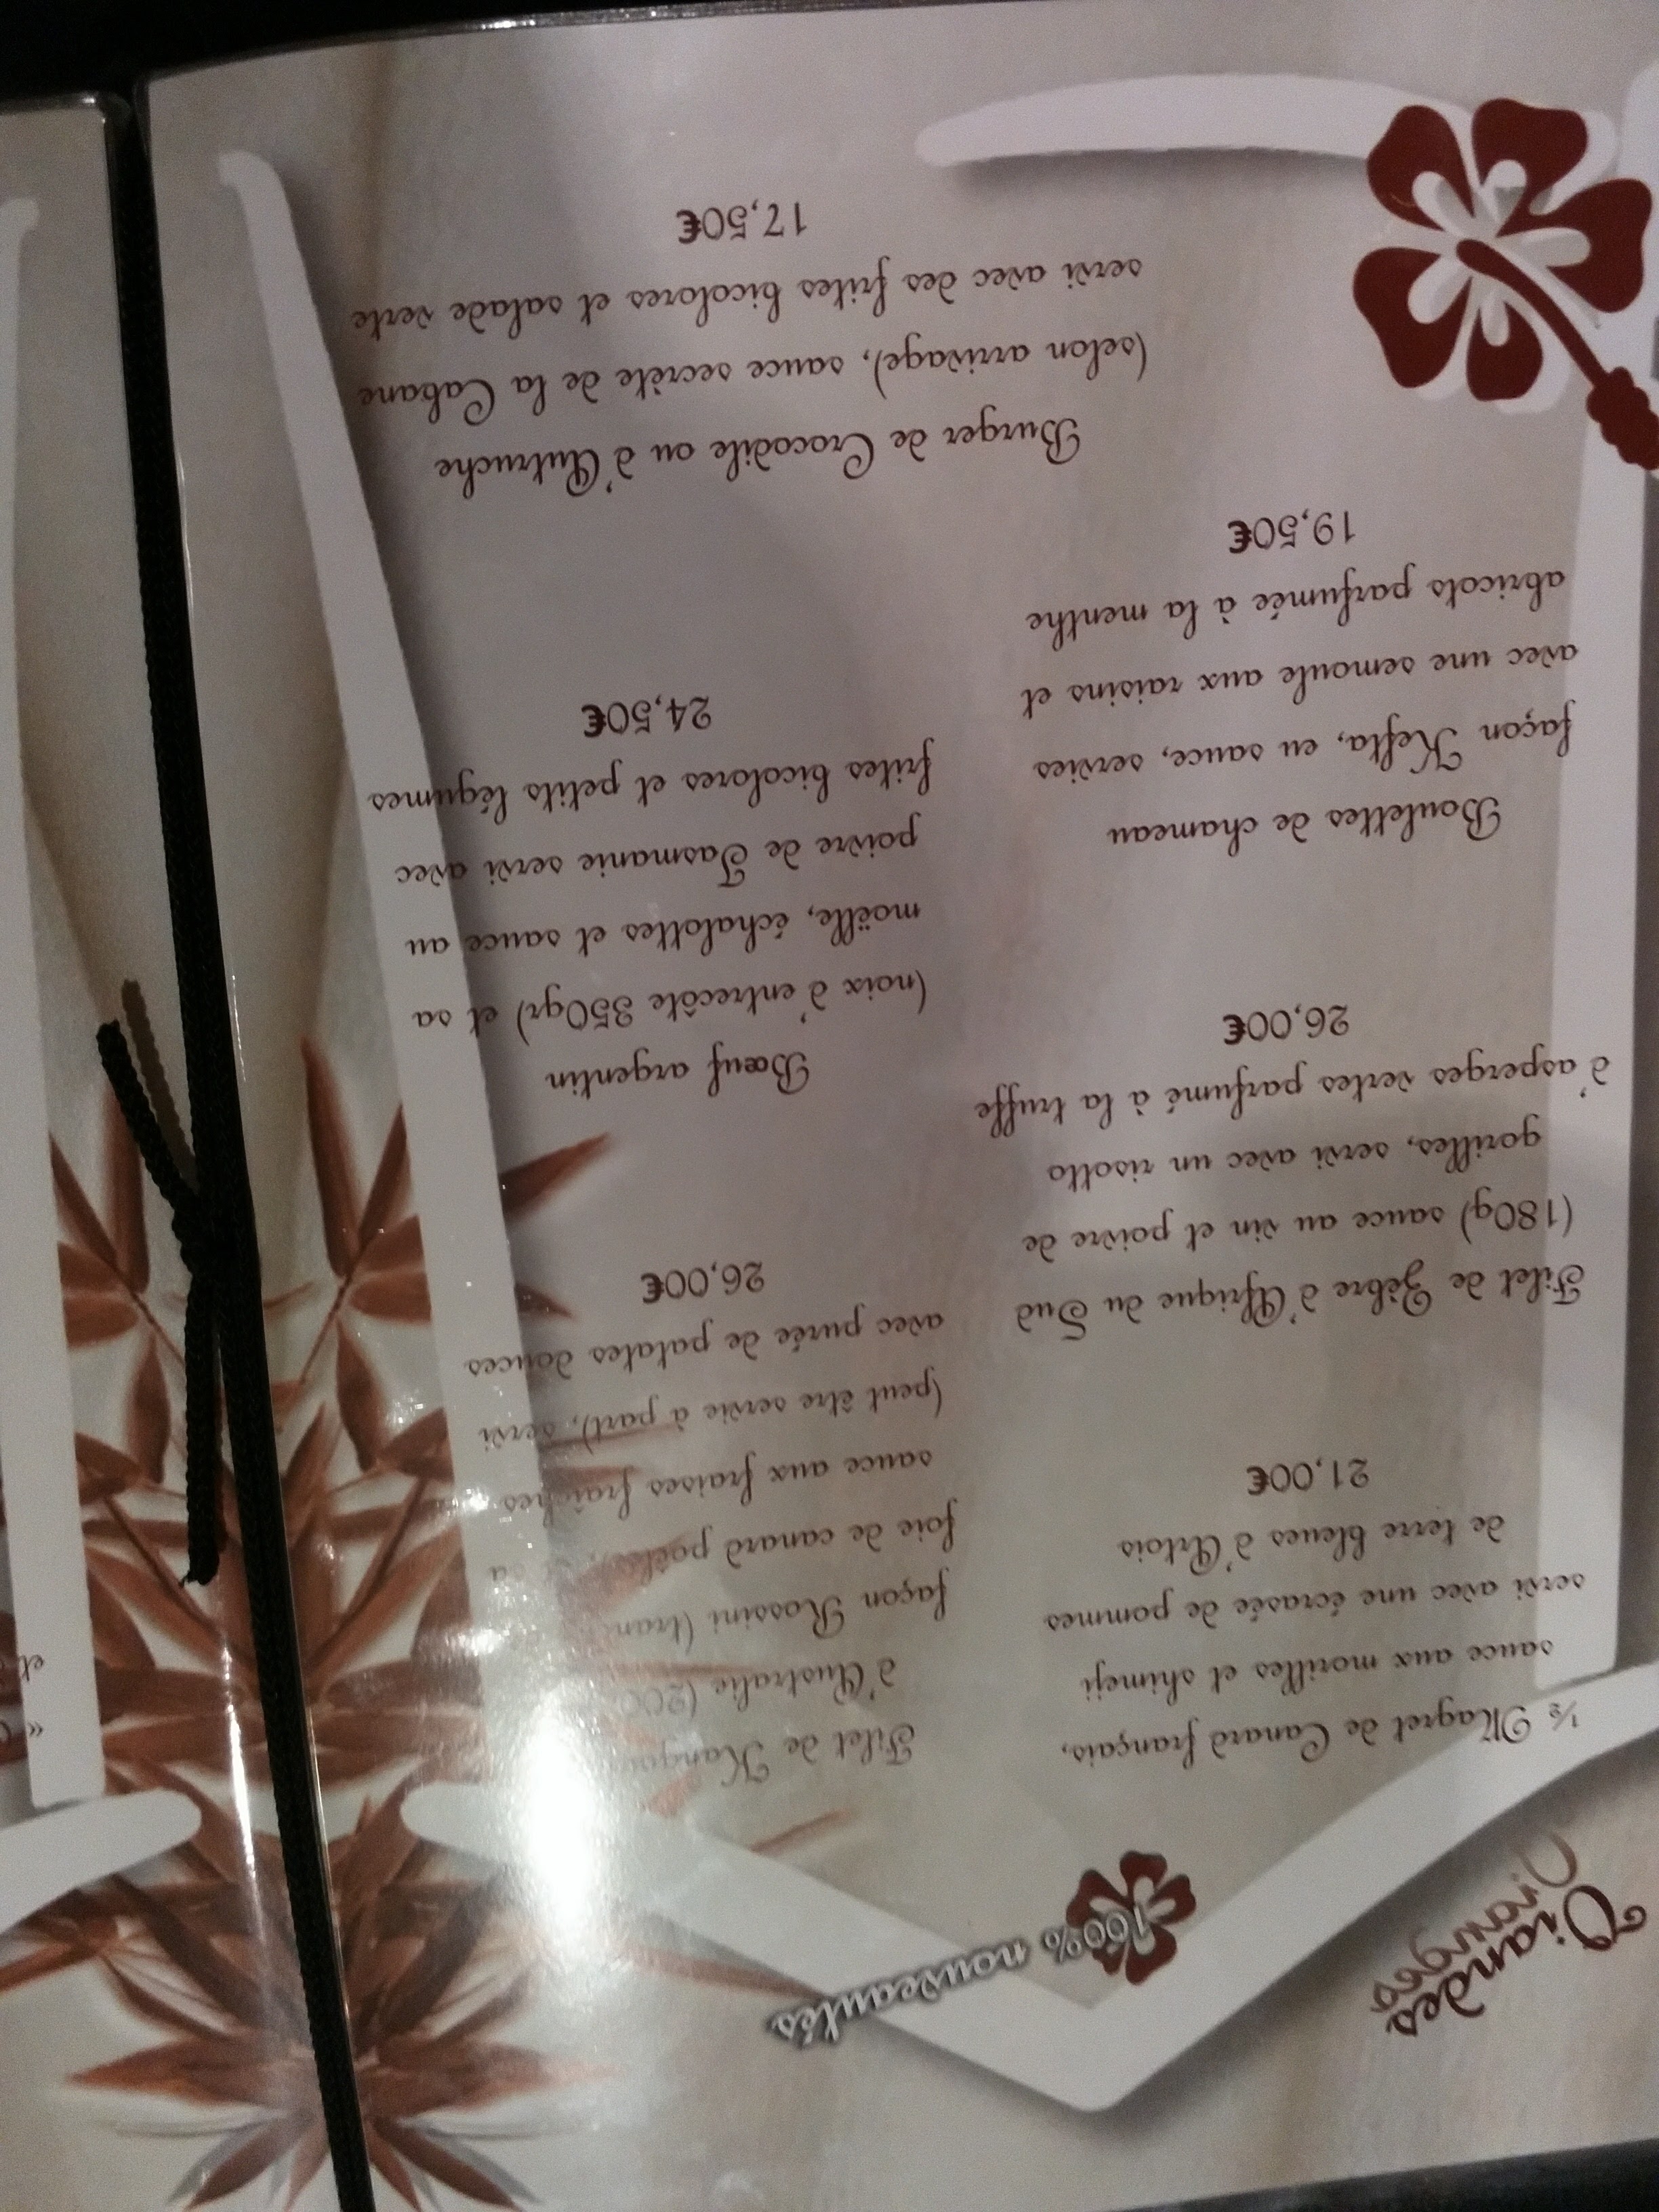 Viandes
100% nouveautés
½ Magret de Canard français,
sauce aux morilles et shimeji
servi avec une écrasée de pommes
de terre bleues d'Artois
21,00€
Filet de Zèbre d'Afrique du Sud
(180g) sauce au vin et poivre de
gorilles, servi avec un risotto
d'asperges vertes parfumé à la truffe
26,00€
Boulettes de chameau
façon Kefta, en sauce, servies
avec une semoule aux raisins et
abricots parfumée à la menthe
19,50€
Filet de
d'Australie
façon Rossini
foie de canard
sauce aux fraises fraîches
(peut être servie à part), servi
avec purée de patates douces
26,00€
Bœuf argentin
(noix d'entrecôte 350gr) et sa
moëlle, échalottes et sauce au
poivre de Tasmanie servi avec
frites bicolores et petits légumes
24,50€
Burger de Crocodile ou d'Autruche
(selon arrivage), sauce secrète de la Cabane
servi avec des frites bicolores et salade verte
17,50€